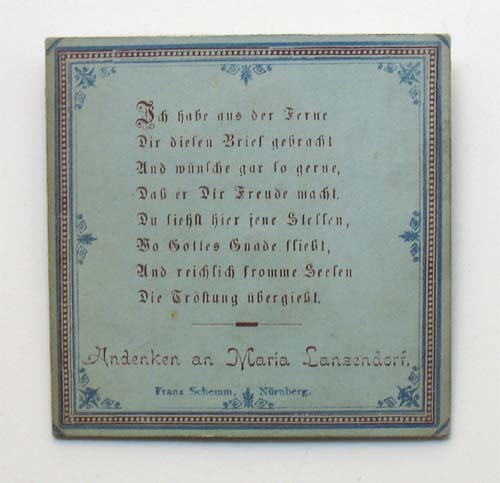 Ich habe aus der Ferne
Dir diesen Brief gebracht
Und wünsche gar so gerne,
Daß er Dir Freude macht.
Du siehst hier jene Stellen,
Wo Gottes Gnade fließt,
Und reichlich fromme Seelen
Die Tröstung übergießt.
Andenken an Maria Lanzendorf.
Franz Schemm, Nürnberg.